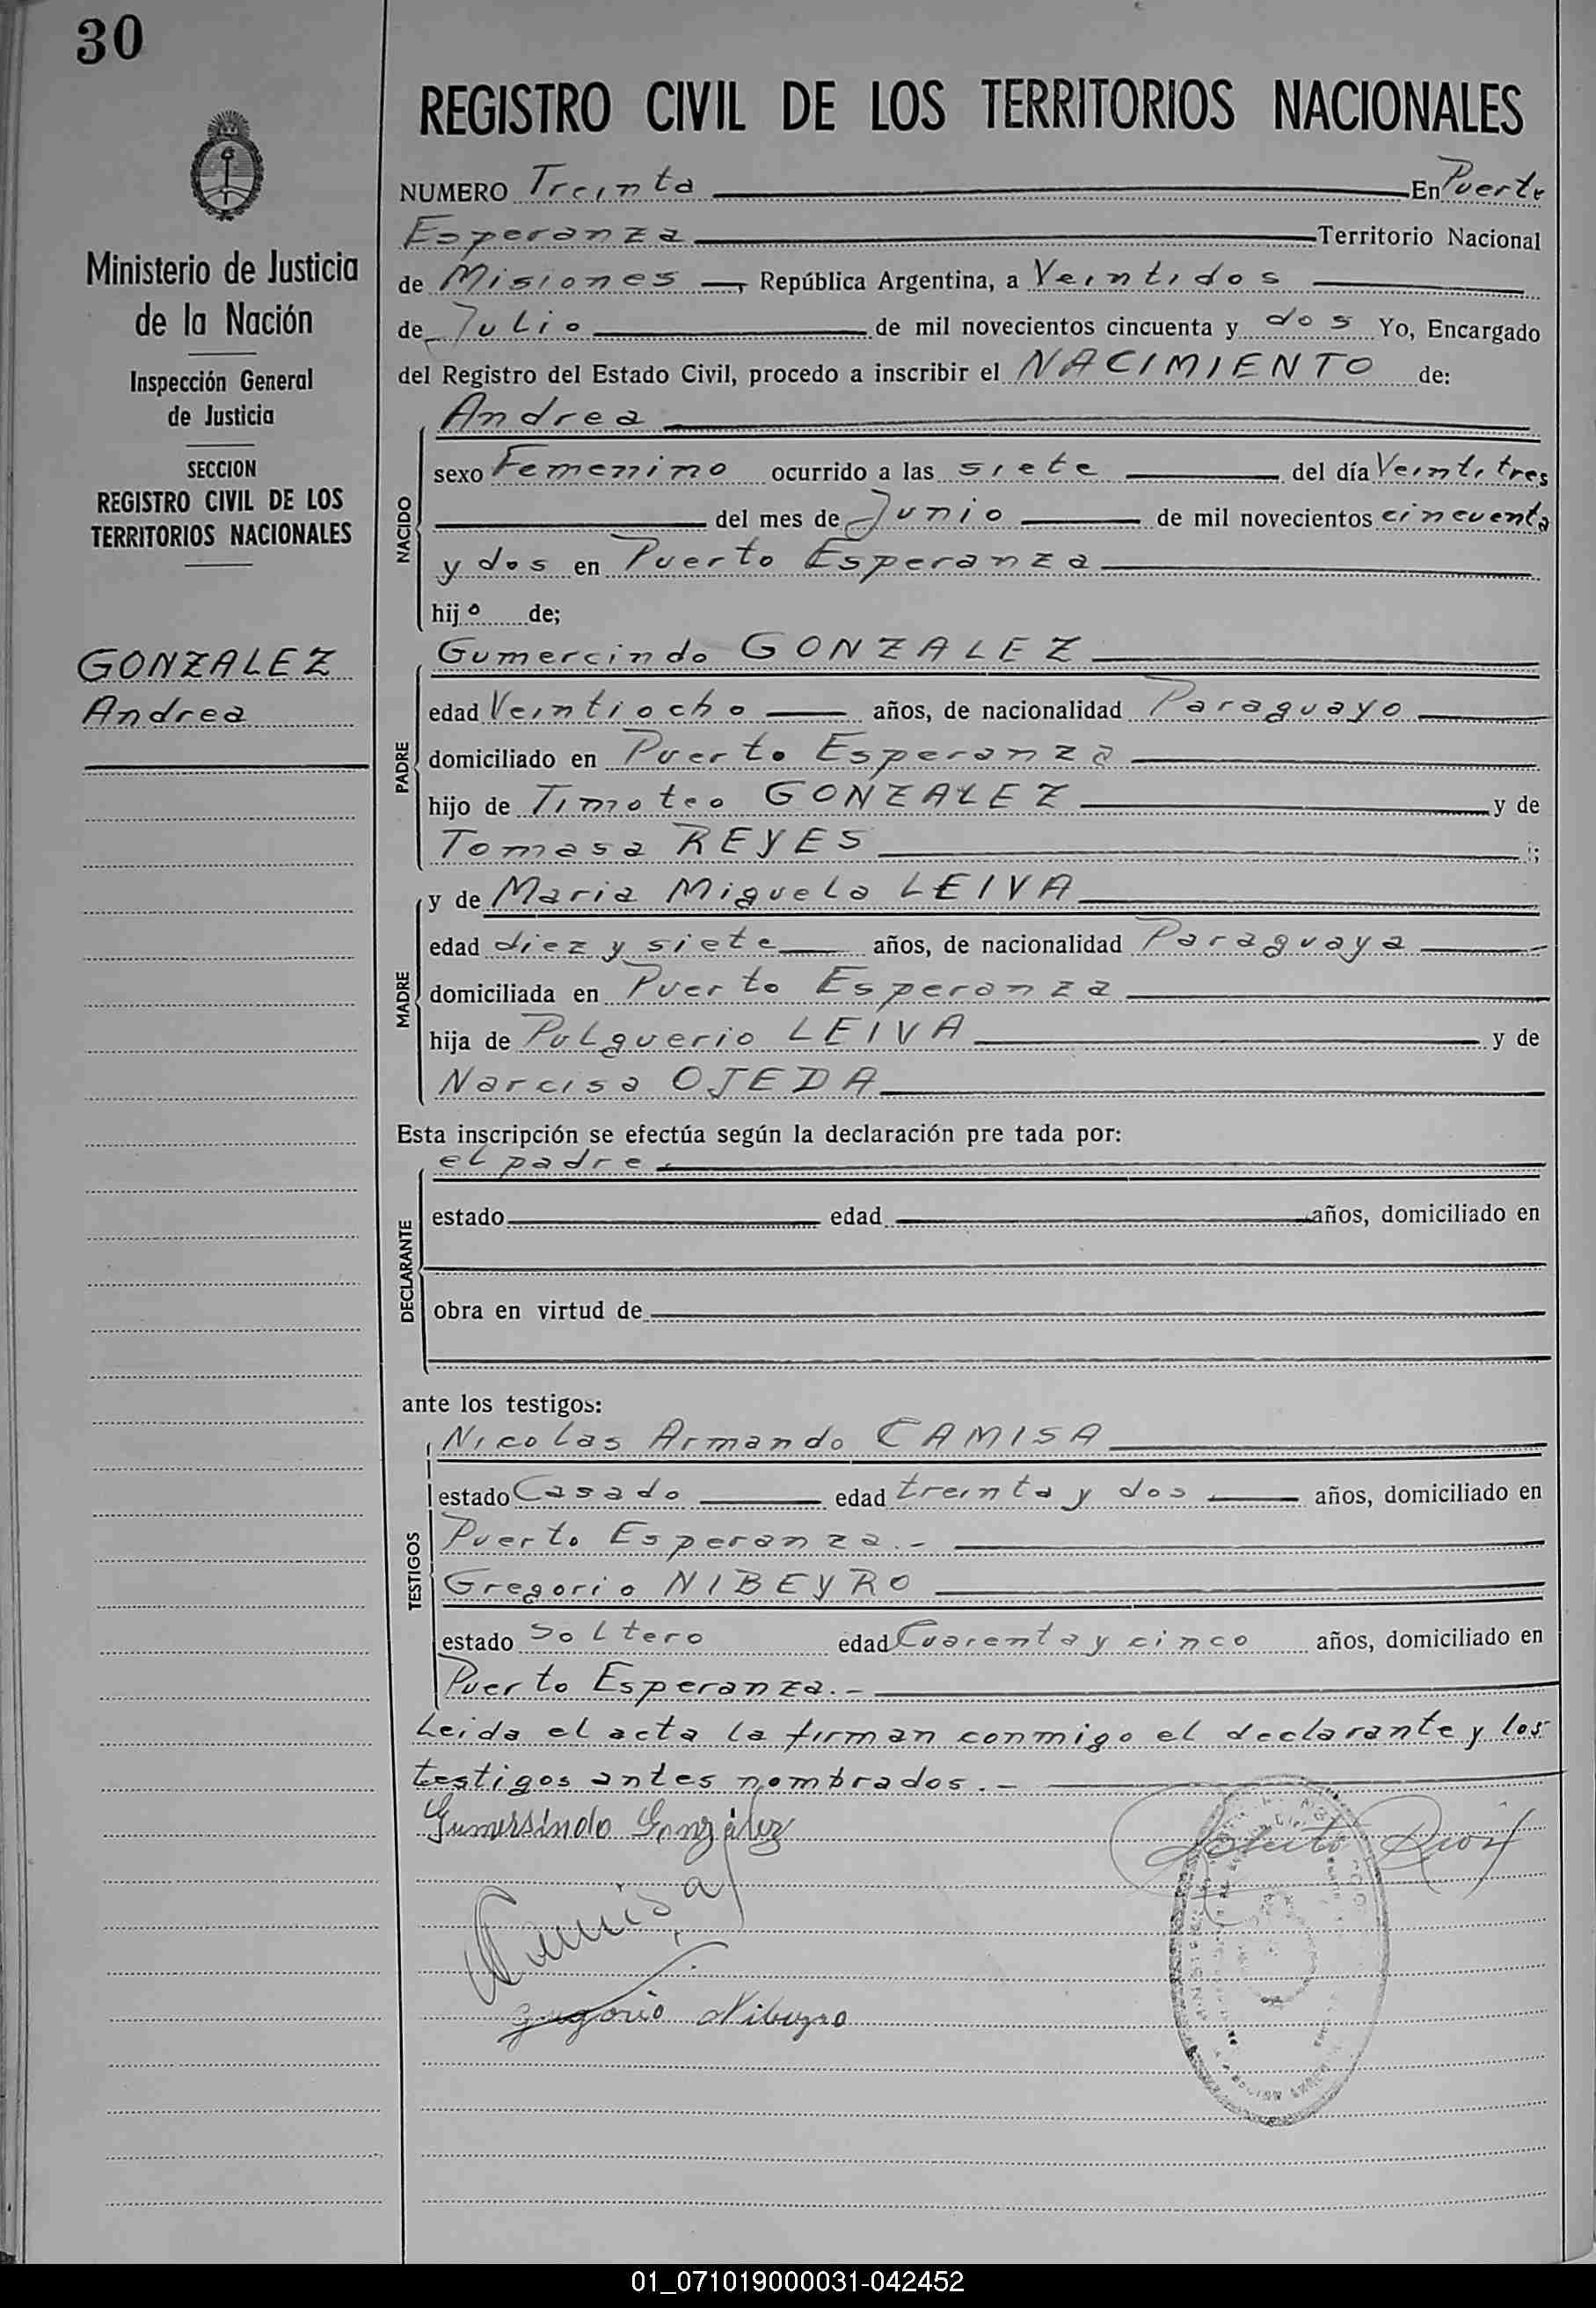 30
Ministerio de Justicia
de la Nación
Inspección General
de Justicia
SECCION
REGISTRO CIVIL DE LOS
TERRITORIOS NACIONALES
GONZALEZ
Andrea
REGISTRO CIVIL DE LOS TERRITORIOS NACIONALES
NUMERO Treinta En Puerto
Esperanza Territorio Nacional
de Misiones, República Argentina, a Veintidos
de Julio de mil novecientos cincuenta y dos Yo, Encargado
del Registro del Estado Civil, procedo a inscribir el NACIMIENTO de:
NACIDO
Andrea
sexo Femenino ocurrido a las siete del día Veintitres
del mes de Junio de mil novecientos cincuenta
y dos en Puerto Esperanza
hijo de;
PADRE
Gumercindo GONZALEZ
edad Veintiocho años, de nacionalidad Paraguayo
domiciliado en Puerto Esperanza
hijo de Timoteo GONZALEZ y de
Tomasa REYES ;
MADRE
y de Maria Miguela LEIVA
edad diez y siete años, de nacionalidad Paraguaya
domiciliada en Puerto Esperanza
hija de Pulguerio LEIVA y de
Narcisa OJEDA
Esta inscripción se efectúa según la declaración pre tada por:
DECLARANTE
el padre.
estado edad años, domiciliado en
obra en virtud de
ante los testigos:
TESTIGOS
Nicolas Armando CAMISA
estado Casado edad treinta y dos años, domiciliado en
Puerto Esperanza.-
Gregorio NIBEYRO
estado Soltero edad Cuarenta y cinco años, domiciliado en
Puerto Esperanza.-
Leida el acta la firman conmigo el declarante y los
testigos antes nombrados.-
Gumersindo González
Camisa
Gregorio Nibeyro
01_071019000031-042452